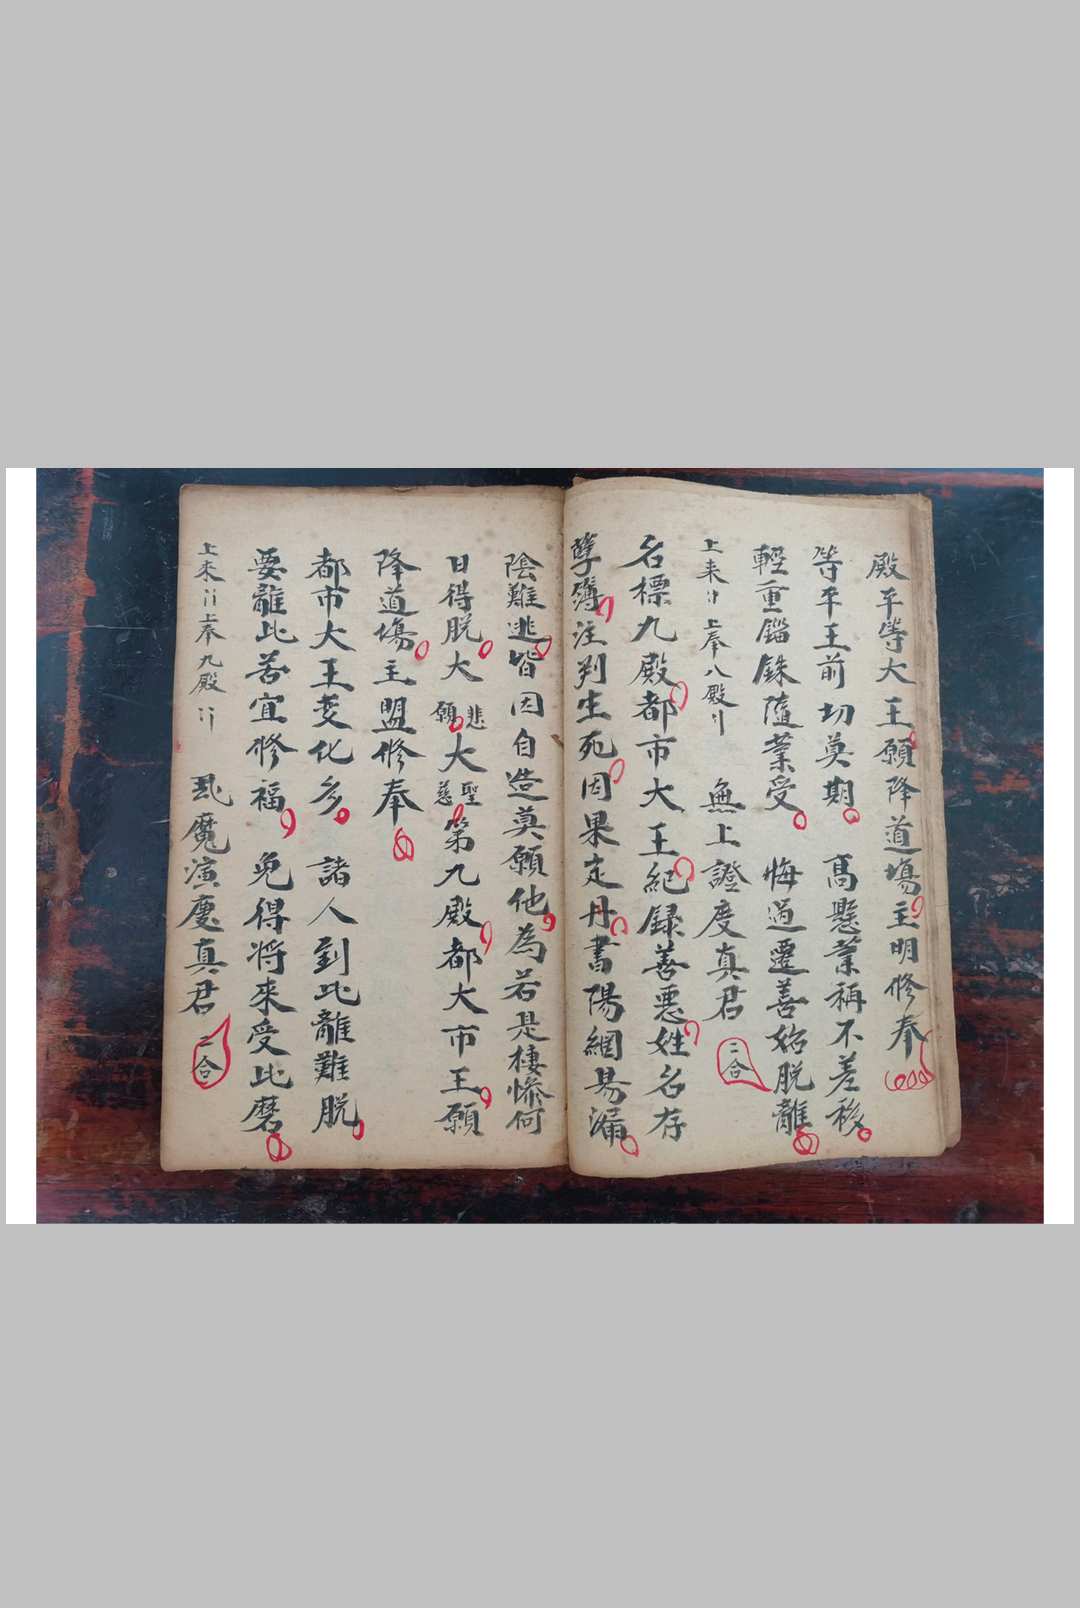 殿平等大王願降道場主明修奉
等平王前切莫期高懸業稱不差移
輕重錙銖隨業受悔過遷善始脫離
上来上奉八殿無上證度真君二合
名標九殿都市大王紀録善惡姓名存
孽簿注判生死因果定丹書陽網易漏
陰難逃皆因自造莫願他為若是棲慘何
日得脫大悲願大聖慈第九殿都大市王願
降道場主盟修奉
都市大王变化多諸人到此離難脫
要離此苦宜修福免得将来受此磨
上来上奉九殿魔演慶真君二合